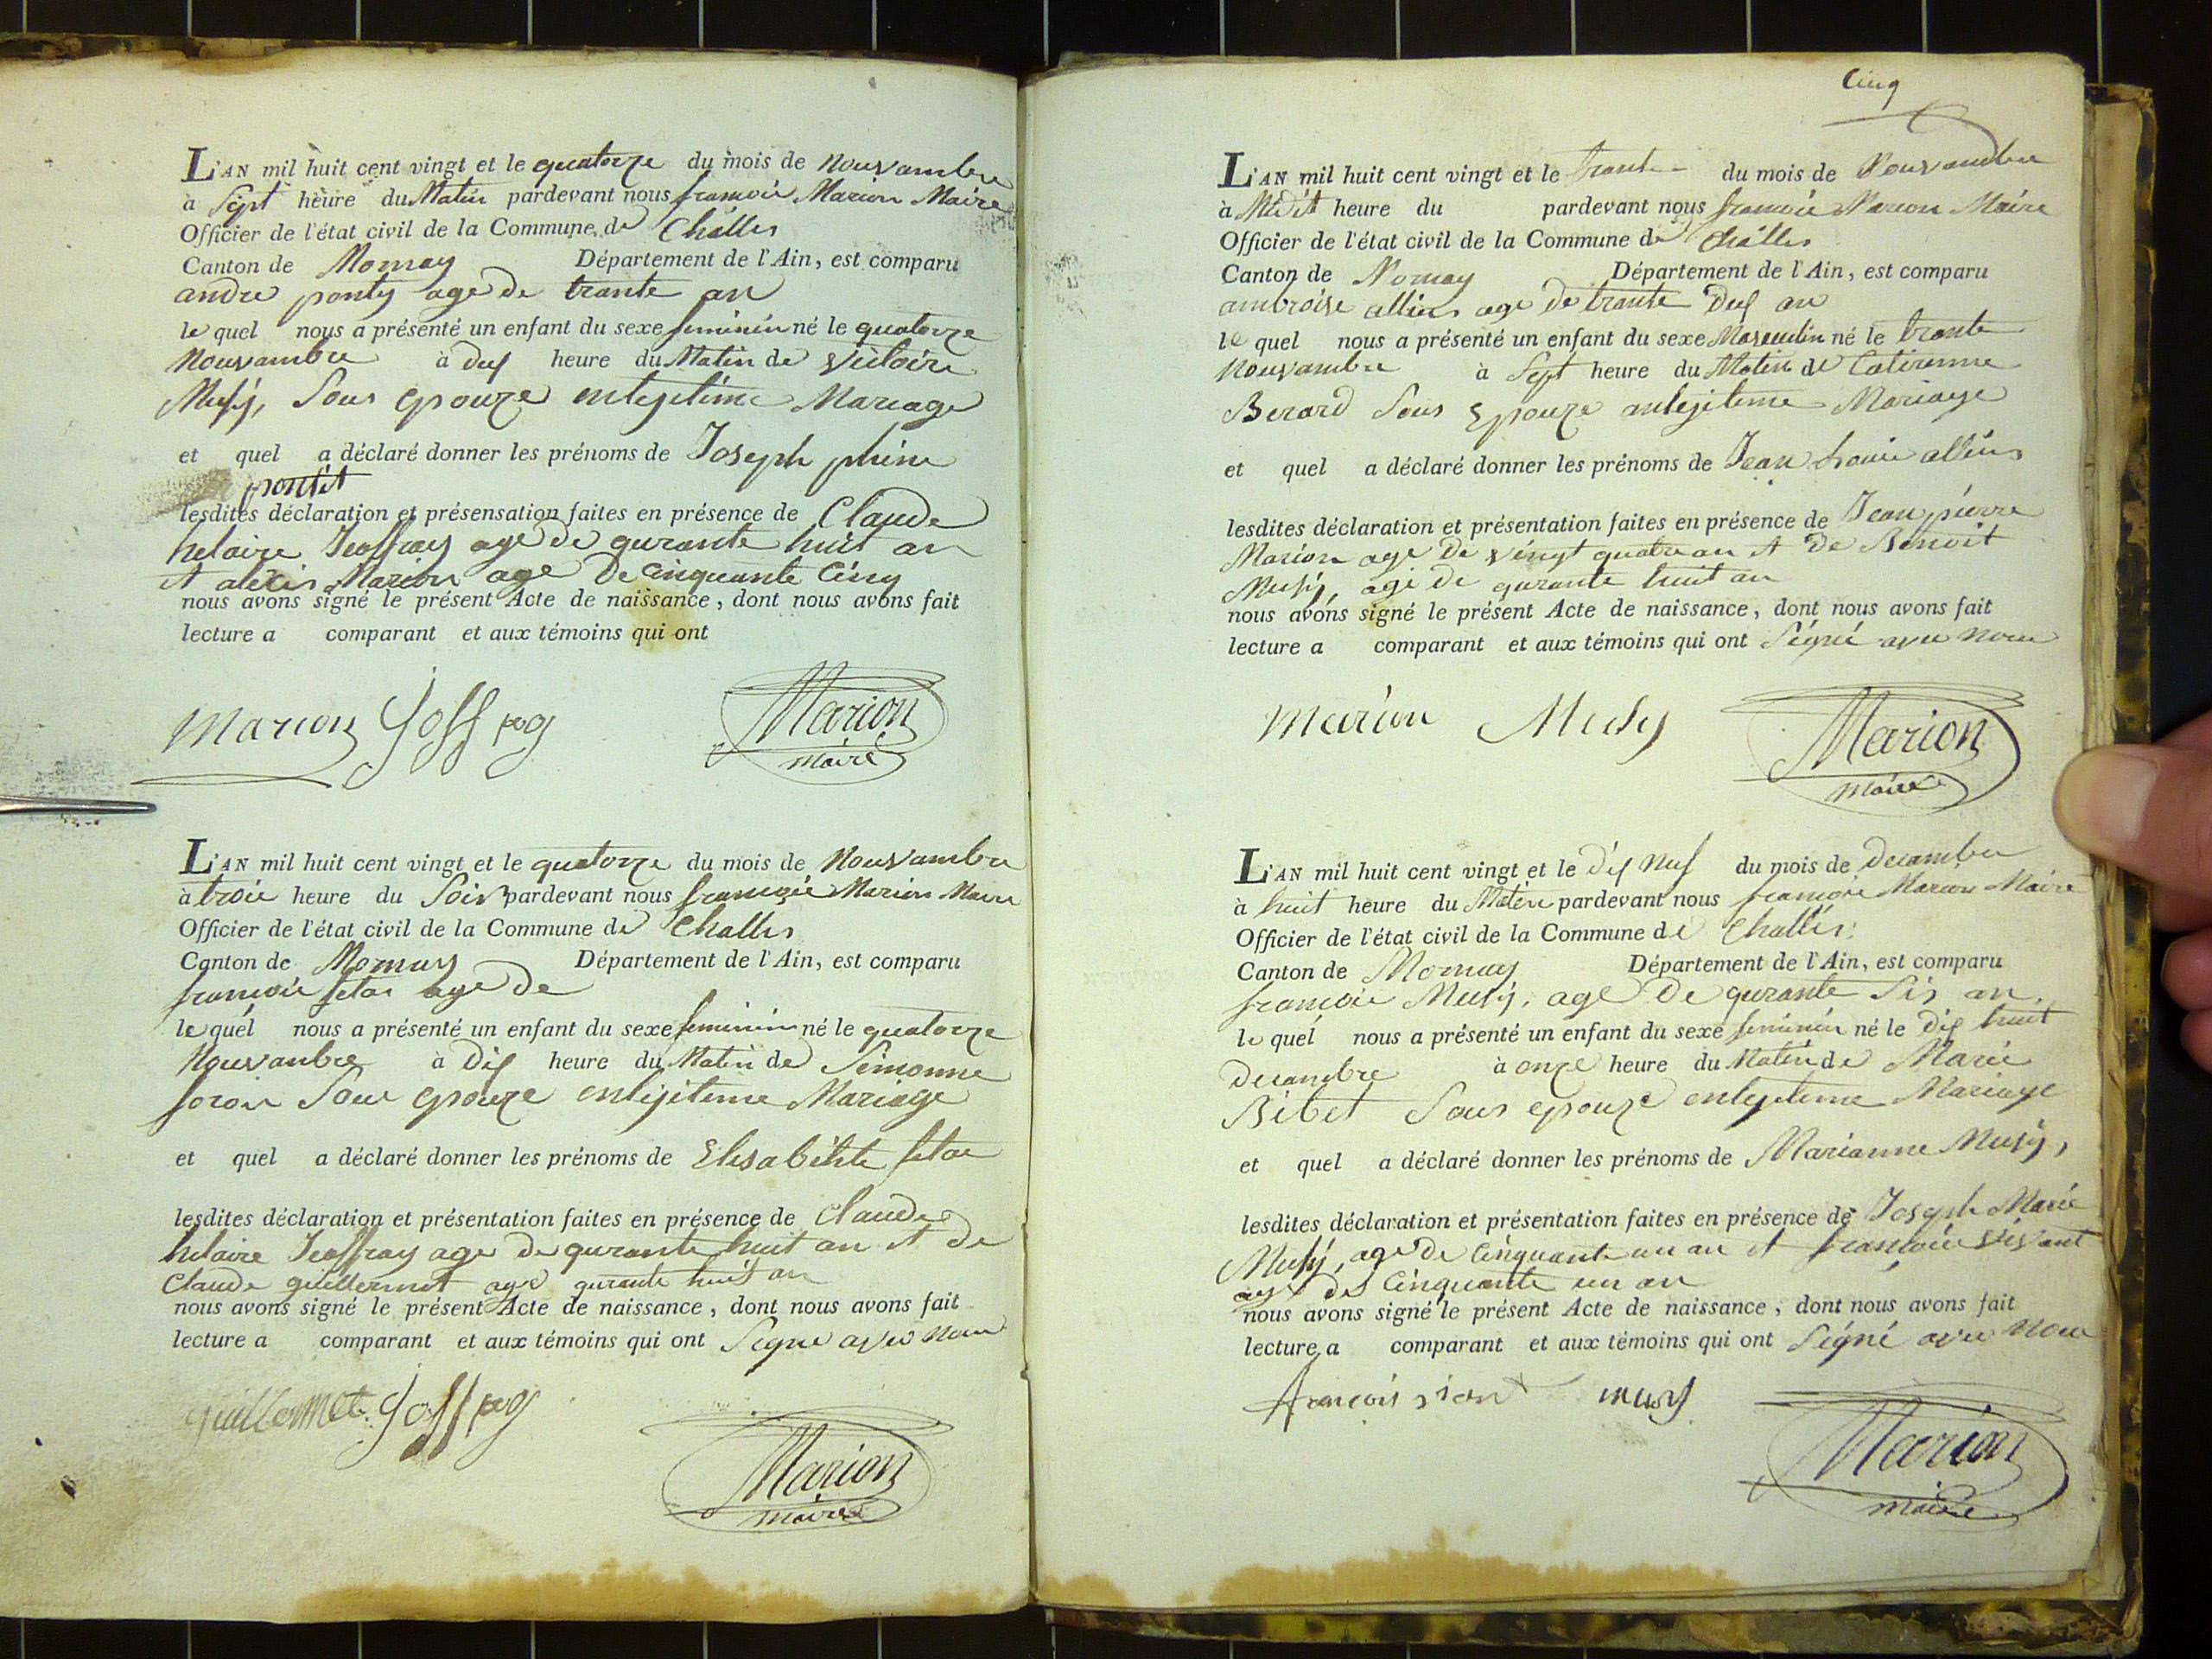 L'AN mil huit cent vingt et le quatorze du mois de Nouvambre
à Sept heure du Matin pardevant nous francois Marion Maire
Officier de l'état civil de la Commune de Challes
Canton de Mornay Département de l'Ain, est comparu
andre age de trante an
le quel nous a présenté un enfant du sexe feminin né le quatorze
Nouvambre à heure du Matin de Victoire
Musy, Sous epouze enlegitime Mariage
et quel a déclaré donner les prénoms de Joseph phine
pontet
lesdites déclaration et présensation faites en présence de Claude
helaire Jeoffray age de qurante huit an
et alexis Marion age de Cinquante Cinq
nous avons signé le présent Acte de naissance, dont nous avons fait
lecture a comparant et aux témoins qui ont
Marion Joffray Marion
Maire
L'AN mil huit cent vingt et le quatorze du mois de Nouvambre
à troie heure du Soir pardevant nous francoie Marion Maire
Officier de l'état civil de la Commune de Challes
Canton de Mornay Département de l'Ain, est comparu
francoie age de
le quel nous a présenté un enfant du sexe feminin né le quatorze
Nouvanbre à Dix heure du Matin de Simonne
Sous epouze enlegitime Mariage
et quel a déclaré donner les prénoms de
lesdites déclaration et présentation faites en présence de Claude
helaire Jeoffray age de qurante huit an et de
Claude guillermet age qurante huit an
nous avons signé le présent Acte de naissance, dont nous avons fait
lecture a comparant et aux témoins qui ont Signe avec Nous
guillermet Joffray
Marion
Maire
Cinq
L'AN mil huit cent vingt et le trante du mois de Nouvambre
à heure du pardevant nous francoie Marion Maire
Officier de l'état civil de la Commune de Challes
Canton de Mornay Département de l'Ain, est comparu
ambroise age de trante an
le quel nous a présenté un enfant du sexe Masculin né le trante
Nouvambre à Sept heure du Matin de Catirenne
Berard Sous Epouze anlegiteme Mariage
et quel a déclaré donner les prénoms de Jean
lesdites déclaration et présentation faites en présence de Jean pierre
Marion age de vingt quatre an et de Benoit
Musy, age de qurante huit an
nous avons signé le présent Acte de naissance, dont nous avons fait
lecture a comparant et aux témoins qui ont Signé avec Nous
Marion Musy Marion
Maire
L'AN mil huit cent vingt et le dix nuf du mois de decambre
à huit heure du Matin pardevant nous francoie Marion Maire
Officier de l'état civil de la Commune de Challes
Canton de Mornay Département de l'Ain, est comparu
francoie Musy, age de qurante Six an
le quel nous a présenté un enfant du sexe feminin né le dix huit
decambre à onze heure du Matin de Marie
Bibet Sous epouze enlegiteme Mariage
et quel a déclaré donner les prénoms de Marianne Musy,
lesdites déclaration et présentation faites en présence de Joseph Marie
Musy, age de Cinquante un an et francoie
age de Cinquante un an
nous avons signé le présent Acte de naissance, dont nous avons fait
lecture a comparant et aux témoins qui ont Signé avec Nous
françois musy
Marion
Maire